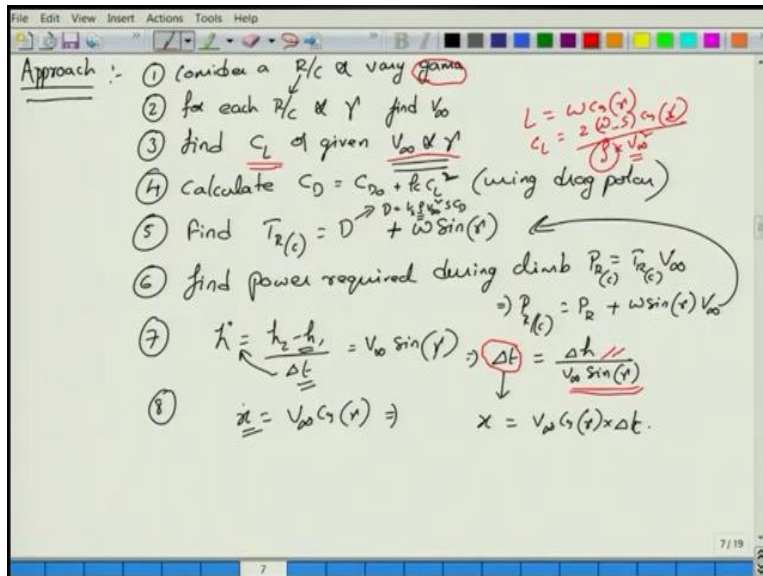 File Edit View Insert Actions Tools Help
Approach :- ① Consider a R/C & vary gama
② for each R/C & γ find V∞
③ find C_L @ given V∞ & γ
L = W Cos(γ)
C_L = 2 (W/S) Cos(γ) / ρ V∞²
④ Calculate C_D = C_D0 + k C_L² (using drag polar)
D = ½ ρ V∞² S C_D
⑤ Find T_R(c) = D + W Sin(γ)
⑥ find power required during climb P_R(c) = T_R(c) V∞
⇒ P_R(c) = P_R + W sin(γ) V∞
⑦ ḣ = (h₂ - h₁) / Δt = V∞ Sin(γ) ⇒ Δt = Δh / V∞ Sin(γ)
⑧ ẋ = V∞ Cos(γ) ⇒ x = V∞ Cos(γ) × Δt.
7 / 19
7